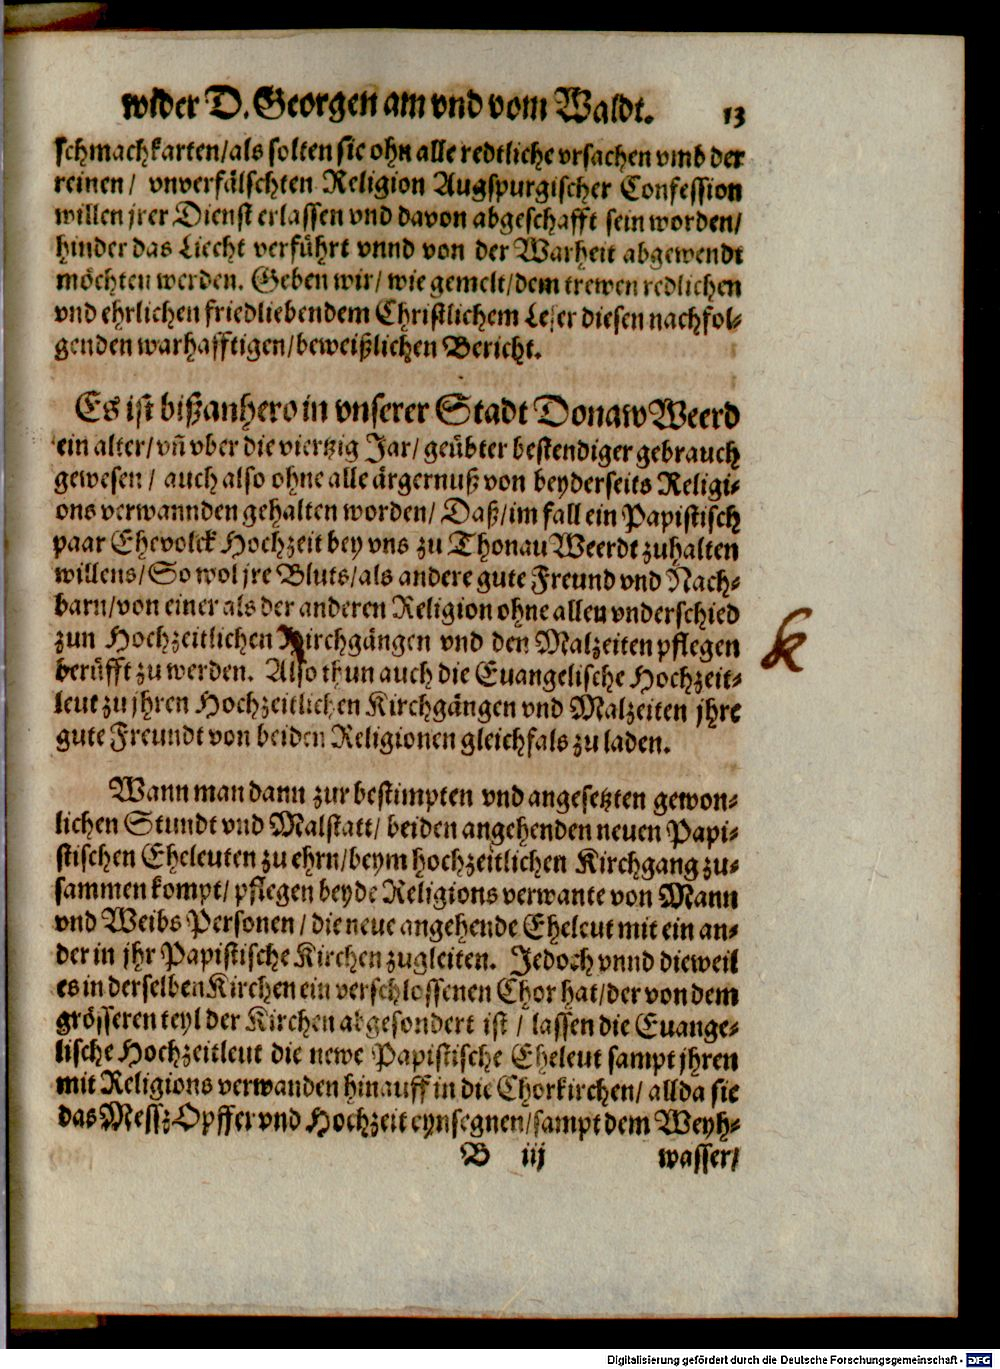 wider D. Georgen am vnd vom Waldt. 13
schmachkarten/als solten sie ohn alle redtliche vrsachen vmb der
reinen/ vnverfälschten Religion Augspurgischer Confession
willen jrer Dienst erlassen vnd davon abgeschafft sein worden/
hinder das Liecht verführt vnnd von der Warheit abgewendt
möchten werden. Geben wir/ wie gemelt/dem trewen redlichen
vnd ehrlichen friedliebendem Christlichem Leser diesen nachfol⸗
genden warhafftigen/beweißlichen Bericht.
Es ist bißanhero in vnserer Stadt Donaw Weerd
ein alter/vñ vber die viertzig Jar/ geübter bestendiger gebrauch
gewesen/ auch also ohne alle ärgernuß von beyderseits Religi⸗
ons verwannden gehalten worden/ Daß/im fall ein Papistisch
paar Ehevolck Hochzeit bey vns zu Thonau Weerdt zuhalten
willens/So wol jre Bluts/als andere gute Freund vnd Nach⸗
barn/von einer als der anderen Religion ohne allen vnderschied
zun Hochzeitlichen Kirchgängen vnd den Malzeiten pflegen
berüfft zu werden. Also thun auch die Euangelische Hochzeit⸗
leut zu jhren Hochzeitlichen Kirchgängen vnd Malzeiten jhre
gute Freundt von beiden Religionen gleichfals zu laden.
k
Wann man dann zur bestimpten vnd angesetzten gewon⸗
lichen Stundt vnd Malstatt/ beiden angehenden neuen Papi⸗
stischen Eheleuten zu ehrn/beym hochzeitlichen Kirchgang zu⸗
sammen kompt/ pflegen beyde Religions verwante von Mann
vnd Weibs Personen/ die neue angehende Eheleut mit ein an⸗
der in jhr Papistische Kirchen zugleiten. Jedoch vnnd dieweil
es in derselben Kirchen ein verschlossenen Chor hat/der von dem
grösseren teyl der Kirchen abgesondert ist/ lassen die Euange⸗
lische Hochzeitleut die newe Papistische Eheleut sampt jhren
mit Religions verwanden hinauff in die Chorkirchen/ allda sie
das Messz Opffer vnd Hochzeit eynsegnen/sampt dem Weyh⸗
B iij wasser/
Digitalisierung gefördert durch die Deutsche Forschungsgemeinschaft - DFG